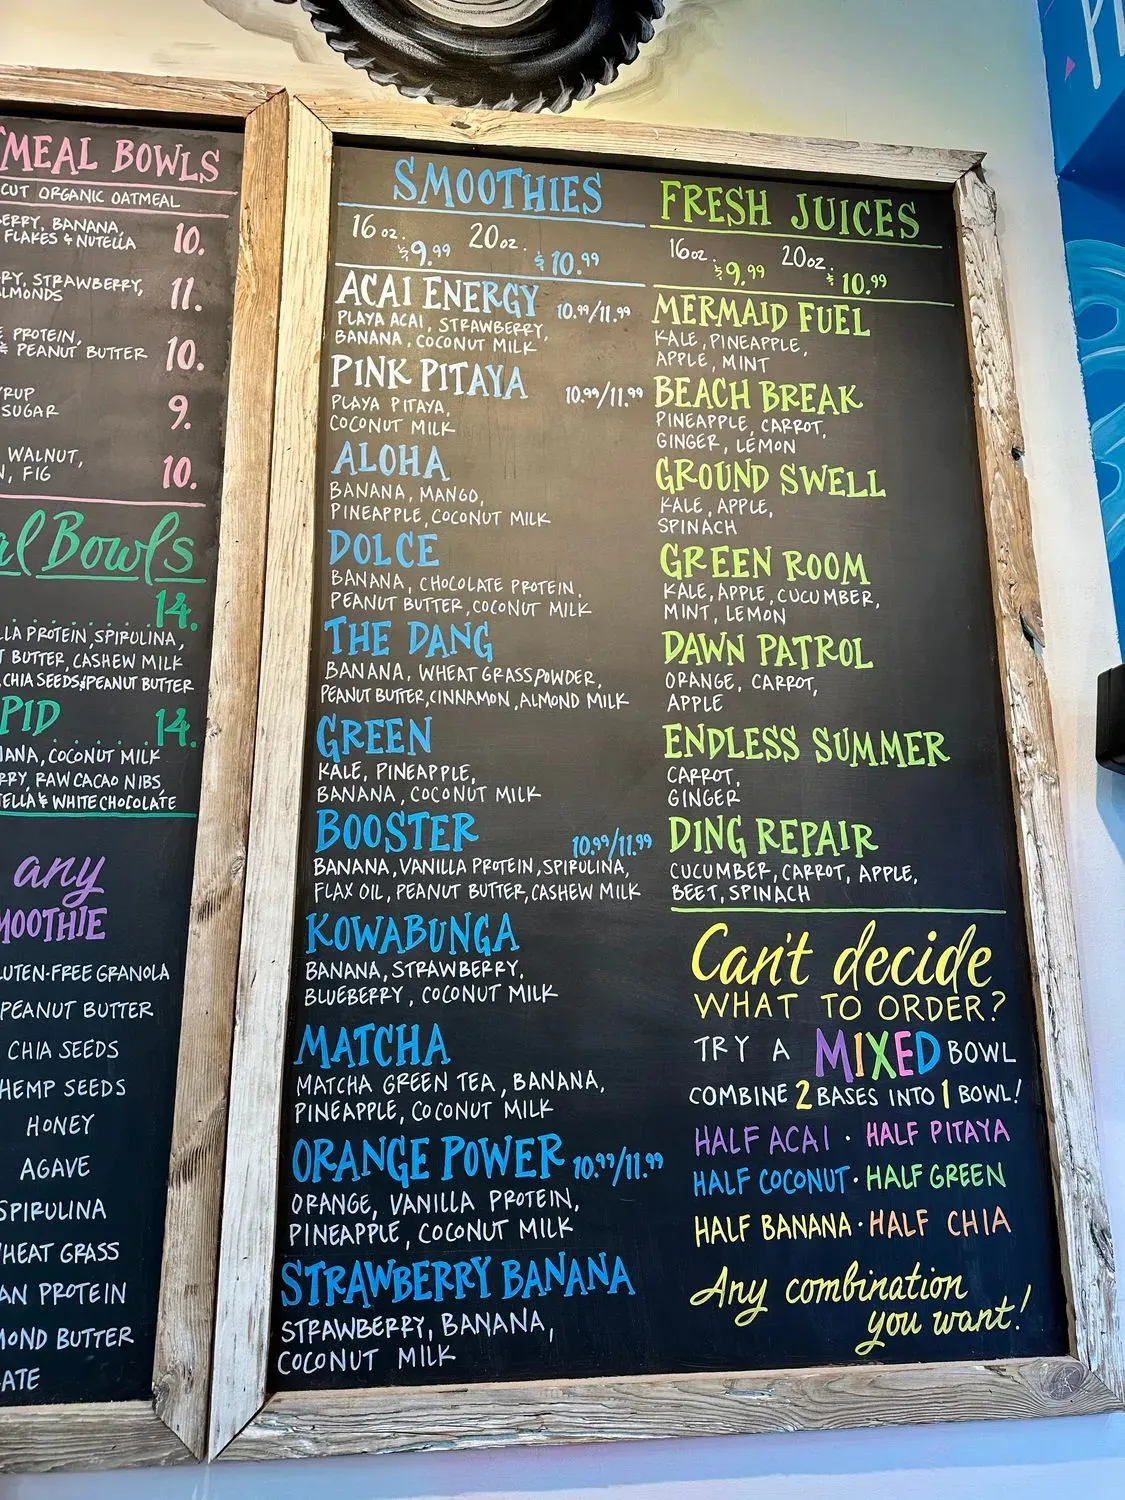 MEAL BOWLS
CUT ORGANIC OATMEAL
BANANA,
FLAKES & NUTELLA 10.
STRAWBERRY,
11.
PROTEIN,
& PEANUT BUTTER 10.
SUGAR 9.
WALNUT,
FIG 10.
Bowls
14.
PROTEIN, SPIRULINA,
BUTTER, CASHEW MILK
CHIA SEEDS, PEANUT BUTTER
14.
COCONUT MILK
RAW CACAO NIBS,
& WHITE CHOCOLATE
any
GLUTEN-FREE GRANOLA
PEANUT BUTTER
CHIA SEEDS
HEMP SEEDS
HONEY
AGAVE
SPIRULINA
WHEAT GRASS
PROTEIN
BUTTER
SMOOTHIES
16 oz. 20 oz.
$9.99 $10.99
ACAI ENERGY 10.99/11.99
PLAYA ACAI, STRAWBERRY,
BANANA, COCONUT MILK
PINK PITAYA 10.99/11.99
PLAYA PITAYA,
COCONUT MILK
ALOHA
BANANA, MANGO,
PINEAPPLE, COCONUT MILK
DOLCE
BANANA, CHOCOLATE PROTEIN,
PEANUT BUTTER, COCONUT MILK
THE DANG
BANANA, WHEAT GRASS POWDER,
PEANUT BUTTER, CINNAMON, ALMOND MILK
GREEN
KALE, PINEAPPLE,
BANANA, COCONUT MILK
BOOSTER 10.99/11.99
BANANA, VANILLA PROTEIN, SPIRULINA,
FLAX OIL, PEANUT BUTTER, CASHEW MILK
KOWABUNGA
BANANA, STRAWBERRY,
BLUEBERRY, COCONUT MILK
MATCHA
MATCHA GREEN TEA, BANANA,
PINEAPPLE, COCONUT MILK
ORANGE POWER 10.99/11.99
ORANGE, VANILLA PROTEIN,
PINEAPPLE, COCONUT MILK
STRAWBERRY BANANA
STRAWBERRY, BANANA,
COCONUT MILK
FRESH JUICES
16oz. 20oz.
$9.99 $10.99
MERMAID FUEL
KALE, PINEAPPLE,
APPLE, MINT
BEACH BREAK
PINEAPPLE, CARROT,
GINGER, LEMON
GROUND SWELL
KALE, APPLE,
SPINACH
GREEN ROOM
KALE, APPLE, CUCUMBER,
MINT, LEMON
DAWN PATROL
ORANGE, CARROT,
APPLE
ENDLESS SUMMER
CARROT,
GINGER
DING REPAIR
CUCUMBER, CARROT, APPLE,
BEET, SPINACH
Can't decide
WHAT TO ORDER?
TRY A MIXED BOWL
COMBINE 2 BASES INTO 1 BOWL!
HALF ACAI · HALF PITAYA
HALF COCONUT · HALF GREEN
HALF BANANA · HALF CHIA
Any combination
you want!